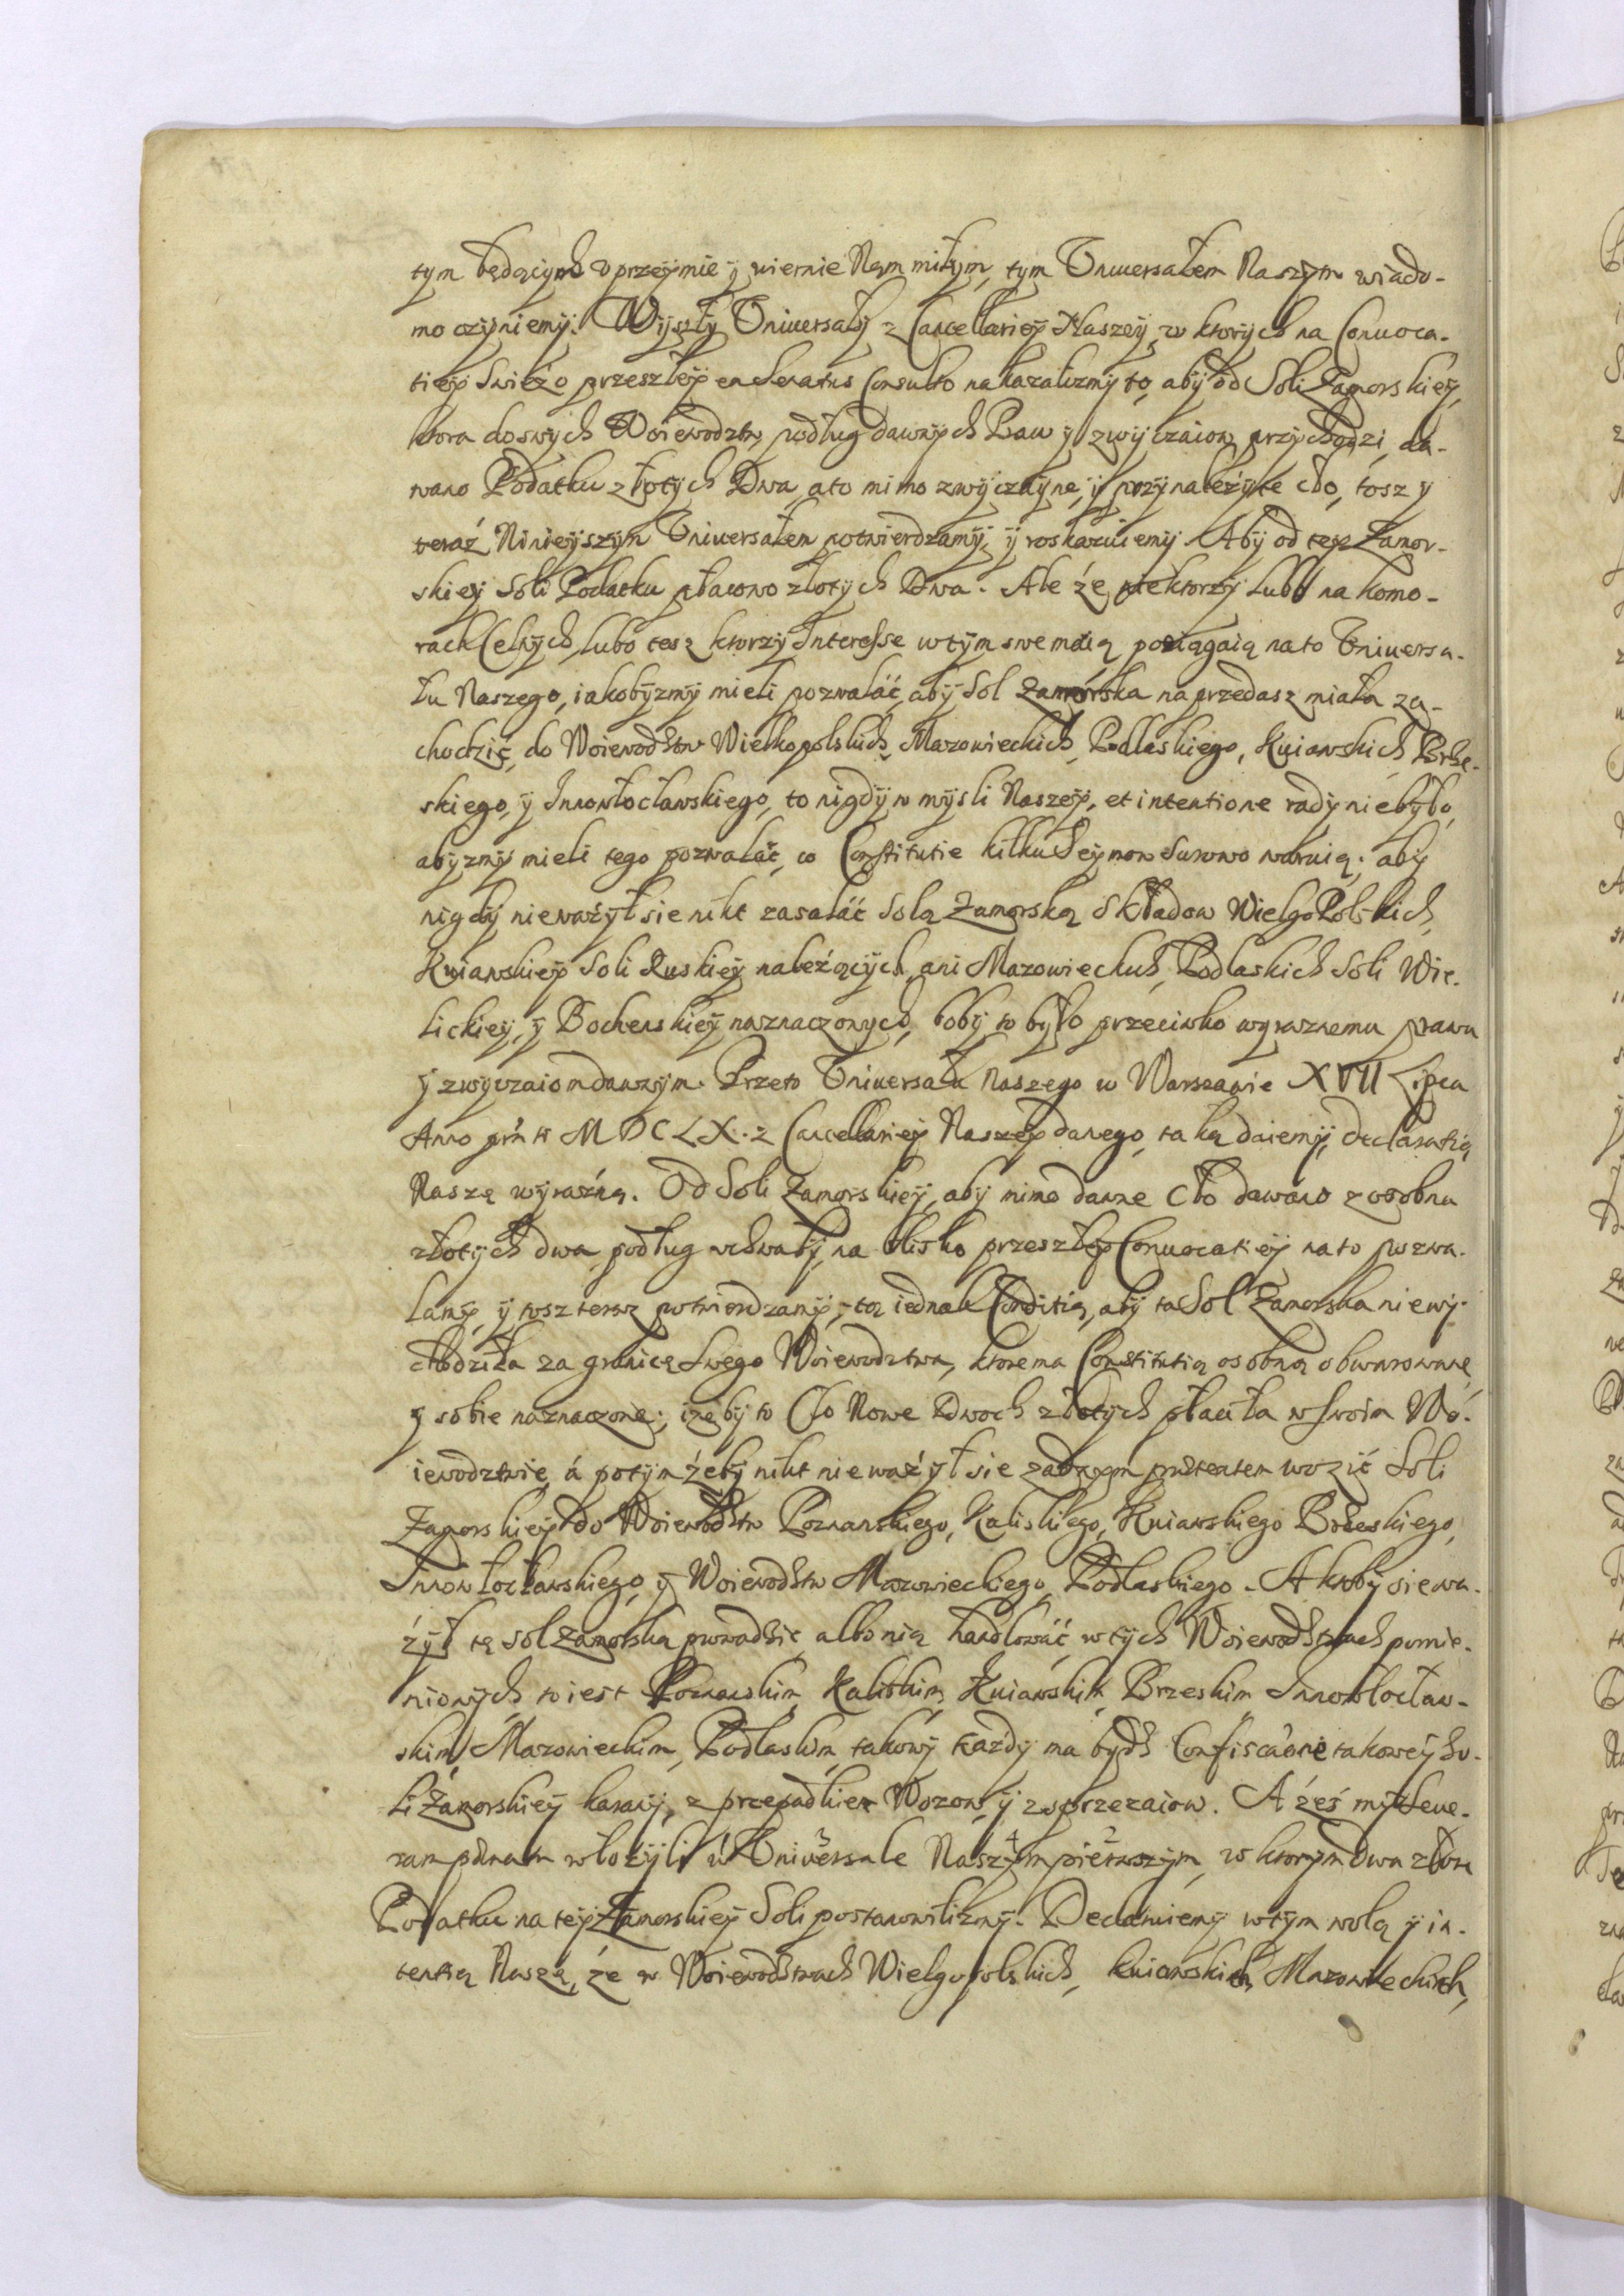 tym będącym Vprzeymie y wiernie Nam miłym, tym Vniuersałem Naszym wiado-
mo czyniemy. Wyszły Vniuersały z Cancellariey Naszey, w ktorych na Conuoca-
tiey swieżo przeszłey ex Senatus Consulto nakazalizmy to, aby od Soli Zamorskiey,
ktora do swych Woiewodztw, podług dawnych Praw y zwyczaiow przychodzi, da-
wano Podatku złotych Dwa, a to mimo zwyczayne, y przynależyte cło, tosz y
teraz Ninieyszym Vniuersałem potwierdzamy, y roskazuiemy. Aby od tey Zamor-
skiey Soli Podatku płacono złotych Dwa. Ale że niektorzy lubo na komo-
rach Celnych, lubo tesz ktorzy Interesse w tym swe maią pociągaią na to Vniuersa-
łu Naszego, iakobyzmy mieli pozwalać, aby Sol Zamorska na przedasz miała za-
chodzić, do Woiewodztw Wielkopolskich, Mazowieckich, Podlaskiego, Kuiawskich Brze-
skiego, y Innowłocławskiego, to nigdy w mysli Naszey, et intentione rady niebyło,
abyzmy mieli tego pozwalać, co Constitutie kilku Seymow surowo waruią; aby
nigdy nieważył sie nikt zasalać Solą Zamorską Składow WielgoPolskich,
Kuiawskiey Soli Ruskiey należących, ani Mazowieckich, Podlaskich Soli Wie-
lickiey, y Bochenskiey naznaczonych, boby to było przeciwko wyraznemu prawu
y zwyczaiom dawnym. Przeto Vniuersału Naszego w Warszawie XVII Lipca
Anno MDCLX. z Cancellariey Naszey danego, taką daiemy declaratią
Naszę wyrazną. Od Soli Zamorskiey, aby mimo dawne Cło dawano z osobna
złotych dwa podług vchwały, na blisko przeszłey Conuocatiey na to pozwa-
lamy, y tosz teraz potwierdzamy, tą iednak Conditią, aby ta Sol Zamorska niewy-
chodziła za granicę Swego Woiewodztwa, ktore ma Constitutią osobną obwarowane,
y sobie naznaczone; iżeby to Cło Nowe Dwoch złotych płaciła w swoim Wo-
iewodztwie, á potym żeby nikt nieważył sie żadnym praetextem wozić Soli
Zamorskiey do Woiewodztw Poznanskiego, Kaliskiego, Kuiawskiego Brzeskiego,
Innowłocławskiego, y Woiewodztw Mazowieckiego, Podlaskiego. A ktoby sie wa-
żył tę sol Zamorską prowadzić, albo nią handlować, w tych Woiewodztwach pomie-
nionych, to iest Poznanskim, Kaliskim, Kuiawskim, Brzeskim Innowłocław-
skim, Mazowieckim, Podlaskim, takowy każdy ma bydz Confiscatie takowey So-
li Zamorskiey karany, z przepadkiem Wozow, y z sprzezaiow. A żeś my
włożyli w Vniuersale Naszym pierwszym, w ktorym dwa złote
Podatku na tey Zamorskiey Soli postanowilizmy. Declaruiemy w tym wolą y in-
tentią Naszą, że w Woiewodztwach Wielgopolskich, Kuiawskich, Mazowieckich,